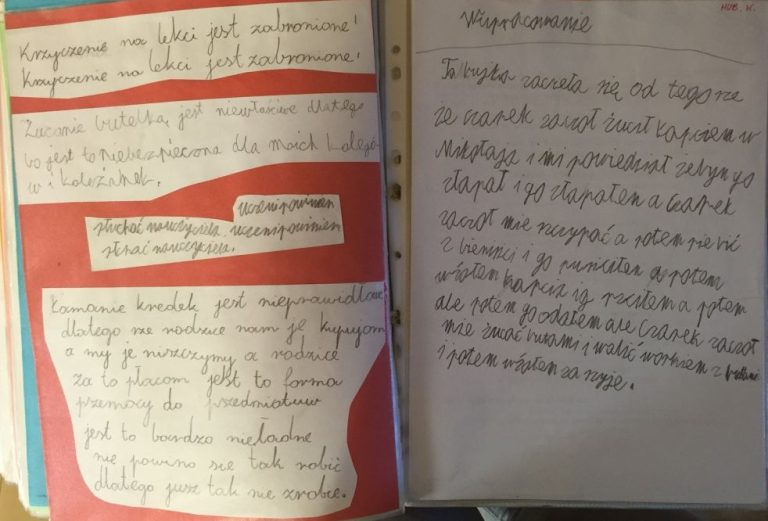 Krzyczenie na lekci jest zabronione!
Krzyczenie na lekci jest zabronione!
Żucanie butelką, jest niewłaściwe dlatego
bo jest to niebezpieczna dla moich kolegó
w i koleżanek.
Uczeni powinien
słuchać nauczyciela. uczeni powinien
słuchać nauczyciela.
Łamanie kredek jest nieprawidłowe
dlatego rze rodzice nam je kupujom
a my je niszczymy a rodzice
za to płacom jest to forma
przemocy do przedmiatuw
jest to bardzo nieładne
nie powino się tak robić
dlatego jusz tak nie zrobie.
HUB. K.
Wypracowanie
Ta bujka zaczeła się od tego rze
że Czarek zaczoł żucił kapciem w
Mikołaja i mi powiedział żebym go
złapał i go złapałem a Czarek
zaczoł mie szczypać a potem się
z i go puściłem a potem
wziołem kapcia i go rzciłem a potem
ale potem go oddałem ale Czarek zaczoł
mie żucać butami i walić workiem z butami
i potem wziołem za szyje.